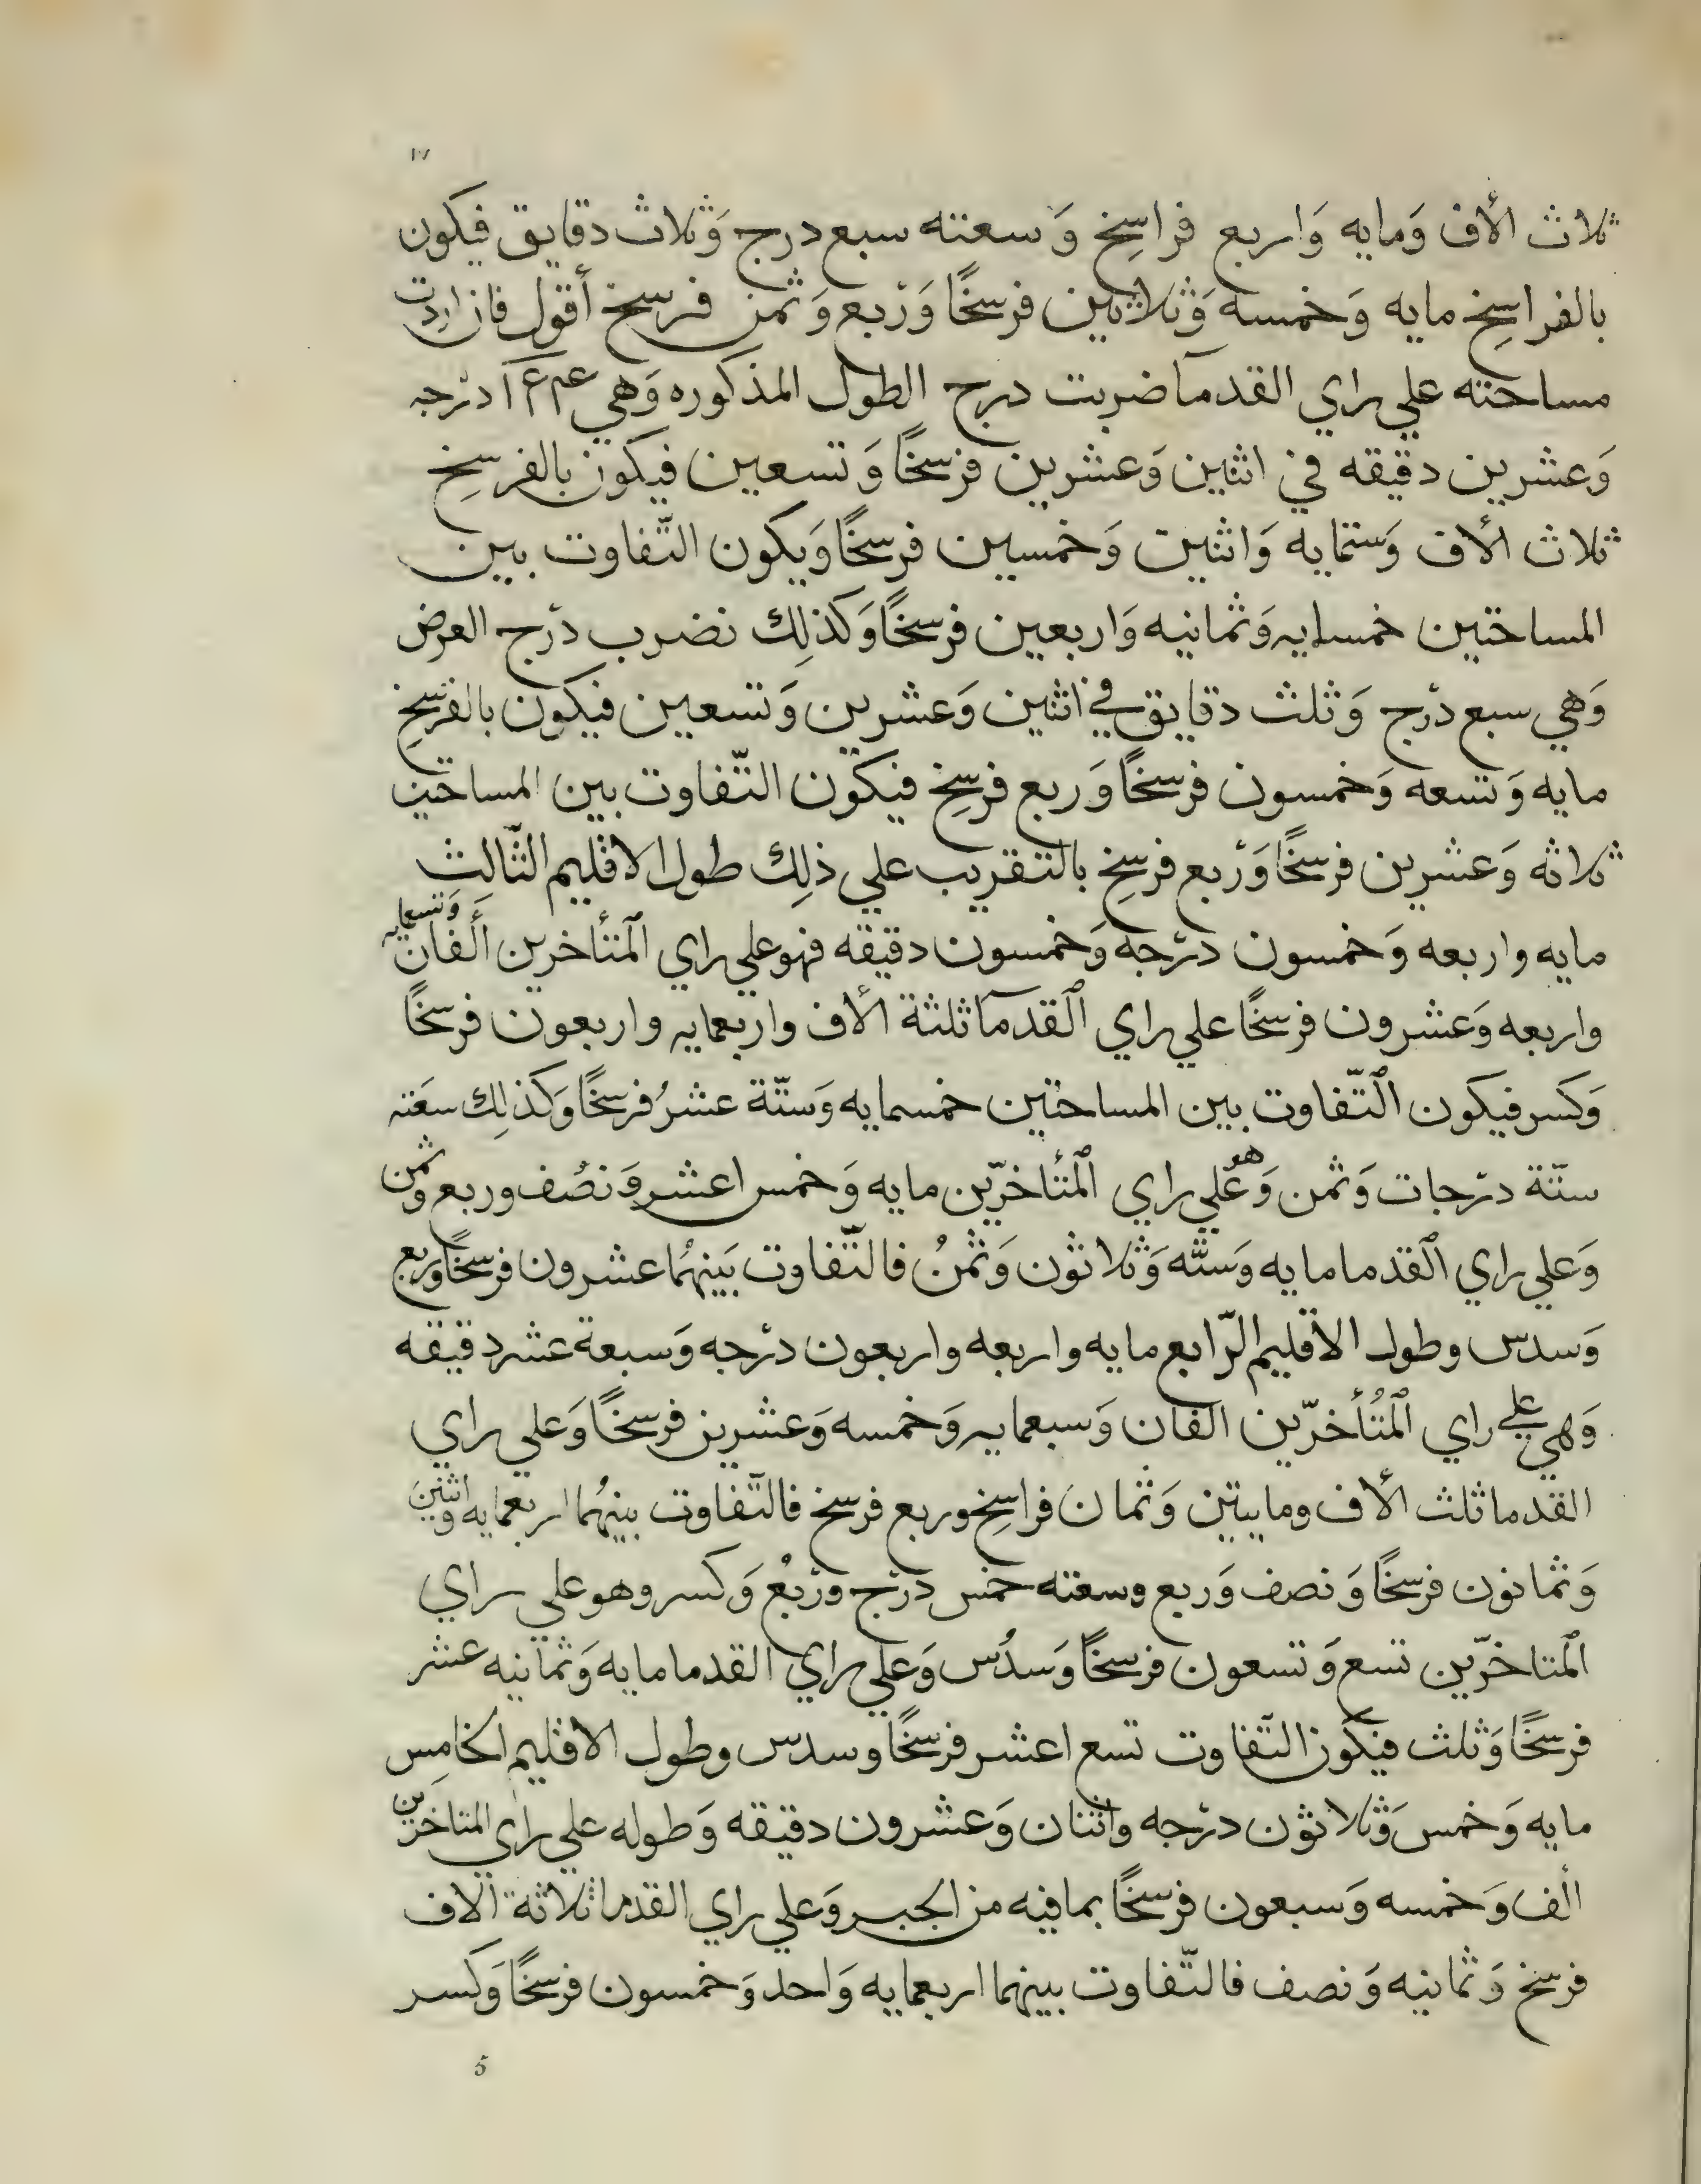 ١٧
ثلاث الأف وَمايه وَاربع فراسِخ وَسعته سبع درج وَثلاث دقايق فيكون
بالفراسِخ مايه وَخمسه وَثلاثين فرسخًا وَرُبع وَثمن فرسخ أقول فان اردت
مساحته علي راي القدمآ ضربت درج الطول المذكوره وَهي درجه
وَعشرين دقيقه في اثنين وَعشرين فرسخًا وَتسعين فيكون بالفرسخ
ثلاث الأف وَستمايه وَاثنين وَخمسين فرسخًا وَيكون التّفاوت بين
المساحتين خمسمايه وَثمانيه وَاربعين فرسخًا وَكذلِك نضرب درج العرض
وَهي سبع درج وَثلث دقايق في اثنين وَعشرين وَتسعين فيكون بالفرسِخ
مايه وَتسعه وَخمسون فرسخًا وَربع فرسِخ فيكون التّفاوت بين المساحتين
ثلاثه وَعشرين فرسخًا وَرُبع فرسِخ بالتقريب علي ذلِك طول الاقليم الثّالِث
مايه واربعه وَخمسون درجه وَخمسون دقيقه فهو علي راي المتأخرين ألفان وَتسعمايه
واربعه وَعشرون فرسخًا علي راي القدمآ ثلثة الأف واربعمايه واربعون فرسخًا
وَكسر فيكون التّفاوت بين المساحتين خمسمايه وَستّة عشرُ فرسخًا وَكذلِك سعَته
ستّة درجات وَثمن وَهو علي راي المتأخرّين مايه وَخمس اعشر وَنصُف وربع وثمن
وَعلي راي القدما مايه وَستّه وَثلاثون وَثمنُ فالتّفاوت بَينهُما عشرون فرسخًا وربع
وَسدس وطول الأقليم الرّابع مايه واربعه واربعون درجه وَسبعة عشر دقيقه
وَهي علي راي المُتأخرّين الفان وَسبعمايه وَخمسه وَعشرين فرسخًا وَعلي راي
القدما ثلث الأف ومايتين وَثمان فراسِخ وربع فرسخ فالتّفاوت بينهُما اربعمايه واثنين
وَثمانون فرسخًا وَنصف وَربع وسعته خمس درج ورُبعُ وَكسر وهو علي راي
المتاخرّين تسع وَتسعون فرسخًا وَسدُس وَعلي راي القدما مايه وَثمانيه عشر
فرسخًا وَثلث فيكون التّفاوت تسع اعشر فرسخًا وسدس وطول الاقليم الخامِس
مايه وَخمس وَثلاثون درجه واثنان وَعشرون دقيقه وَطوله علي راي المتاخرّين
الف وَخمسه وَسبعون فرسخًا بمافيه من الجبر وَعلي راي القدما ثلاثة الاف
فرسخ وَثمانيه وَنصف فالتّفاوت بينهما اربعمايه وَاحد وَخمسون فرسخًا وَكسر
5